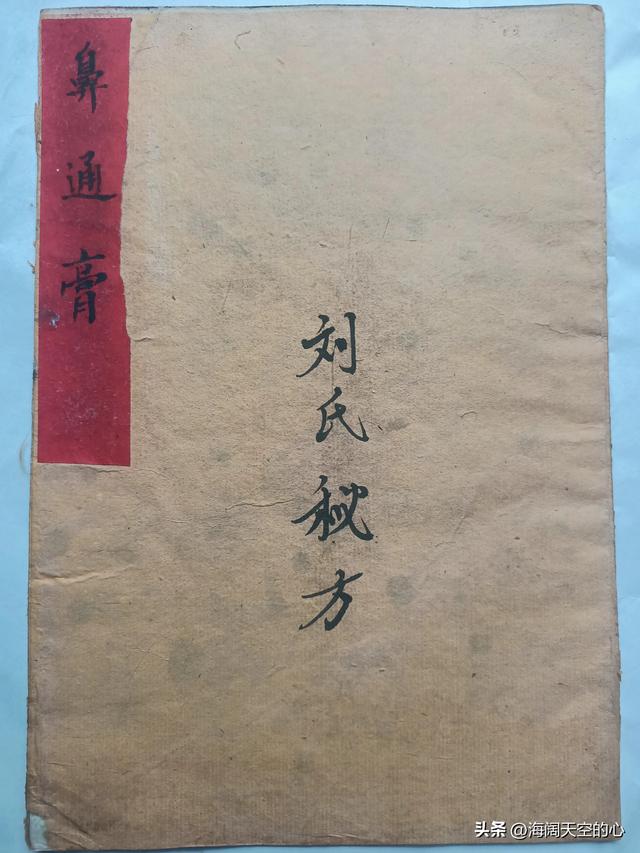 鼻通膏
刘氏秘方
头条 @海阔天空的心